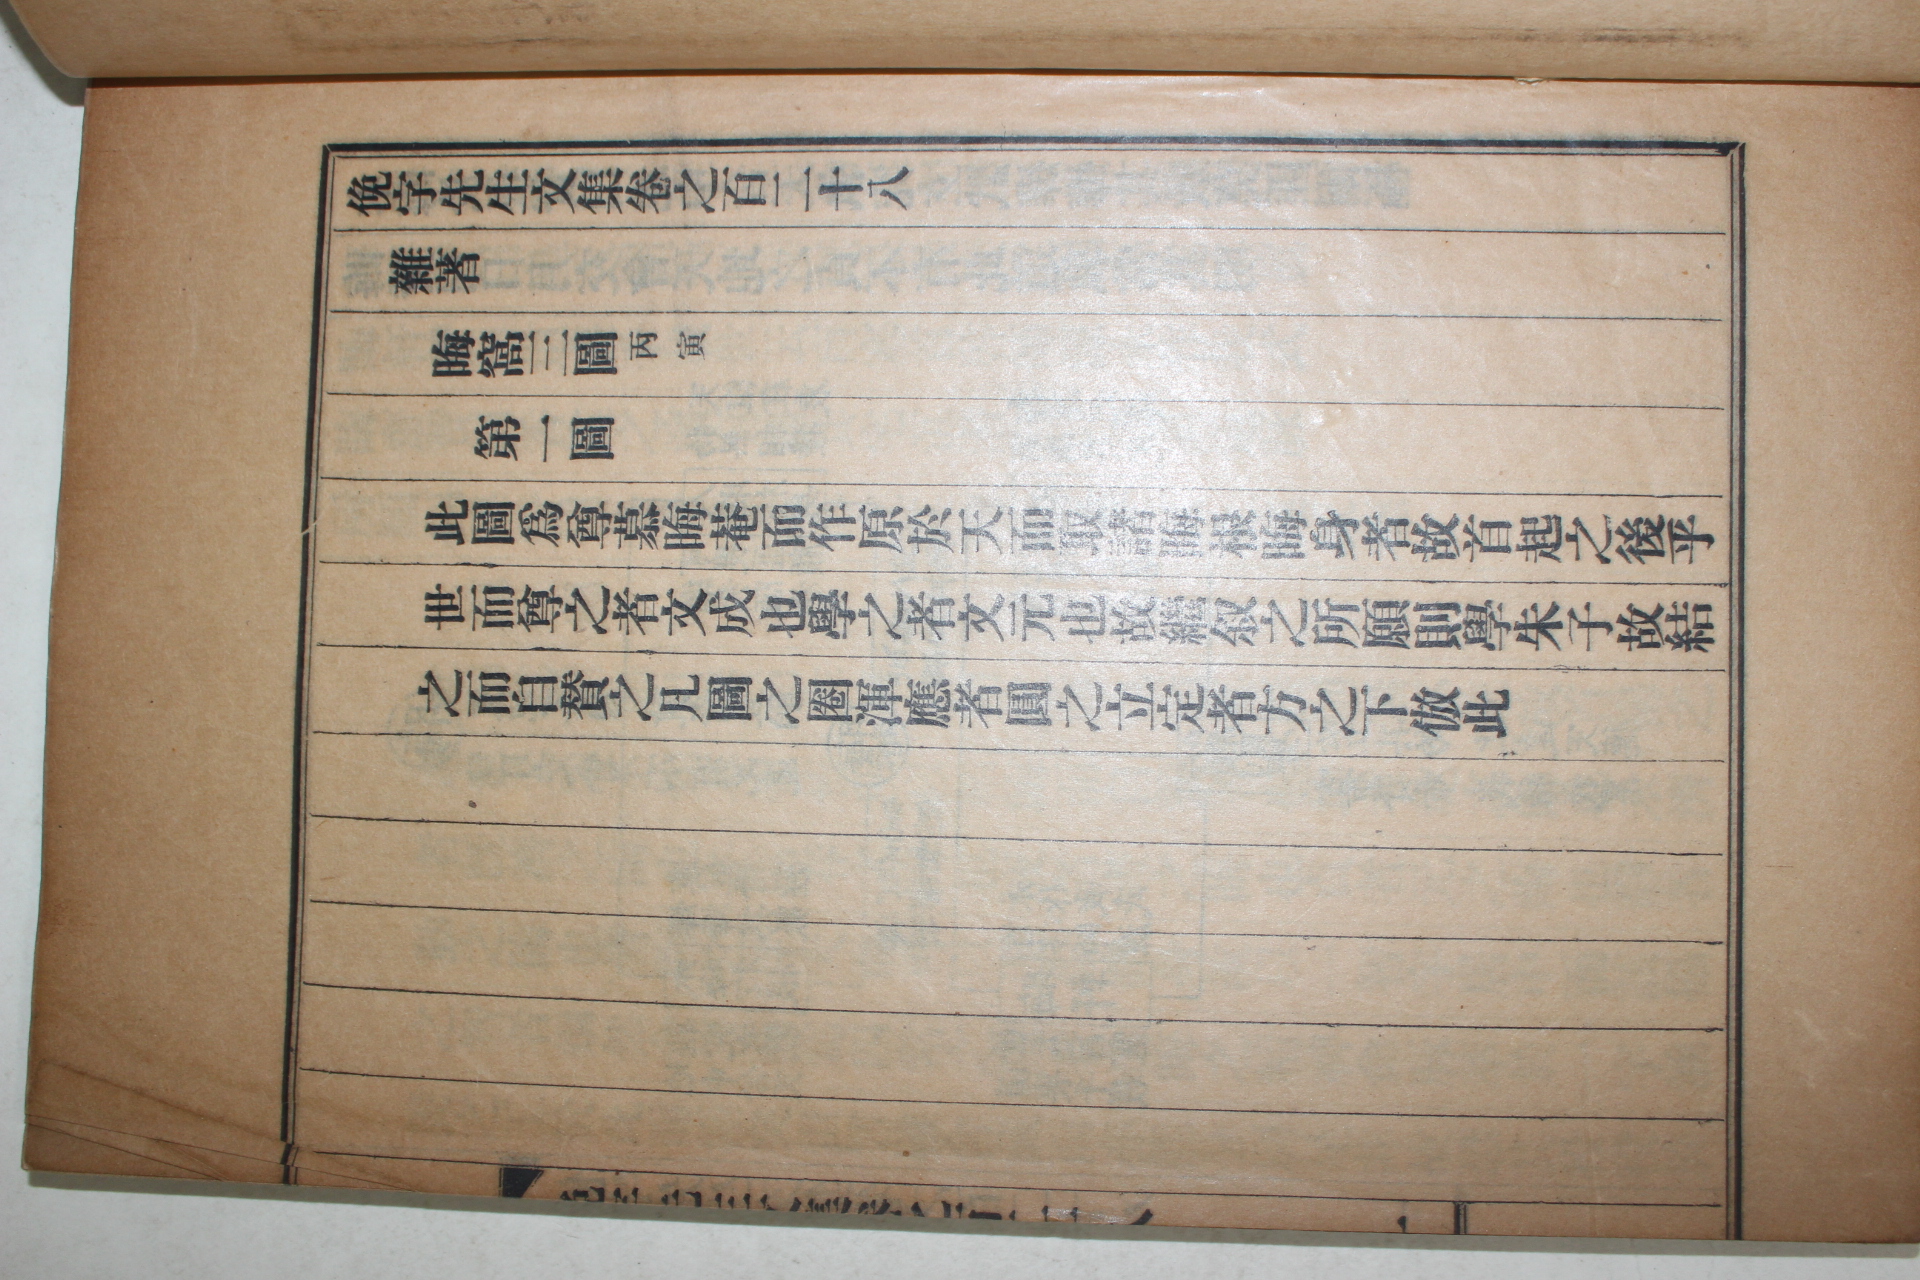 俛宇先生文集卷之百二十八
雜著
晦窩三圖丙寅
第一圖
此圖爲尊慕晦菴而作原於天而取諸晦根晦身者故首起之後乎
世而尊之者文成也學之者文元也故繼叙之所願則學朱子故結
之而自贊之凡圖之圈渾應者圓之立定者方之下倣此